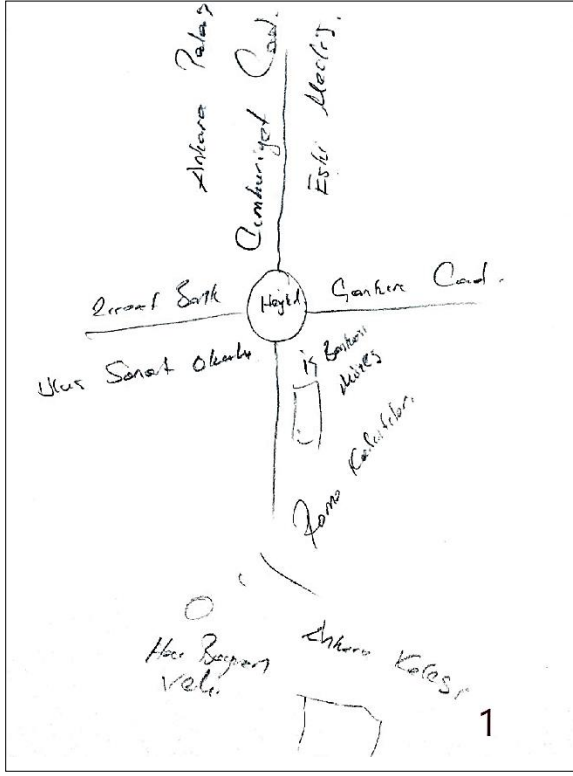 Ankara Palas
Cumhuriyet Cad.
Eski Meclis
Ziraat Bank
Heykel
Çankırı Cad.
Ulus Sanat Okulu
İş Bankası
Müzes
Roma Kalıntıları
Hacı Bayram
Veli
Ankara Kalesi
1